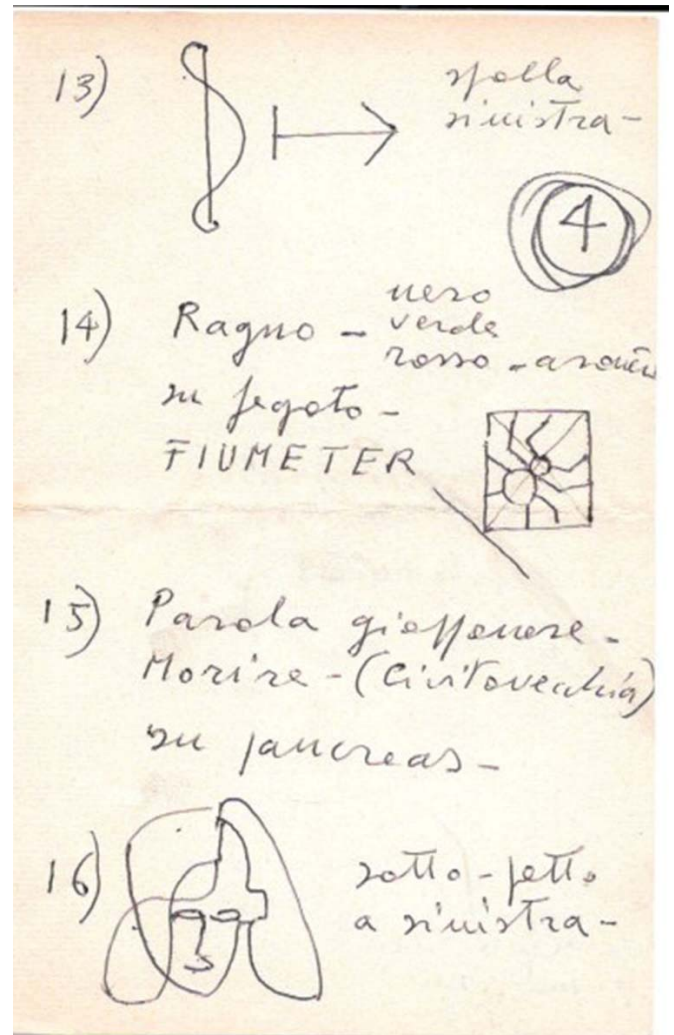 13) spalla
sinistra -
4
14) Ragno - nero
verde
rosso - arancio
su fegato -
FIUMETER
15) Parola giapponese -
Morire - (Civitavecchia)
su pancreas -
16) sotto - petto
a sinistra -